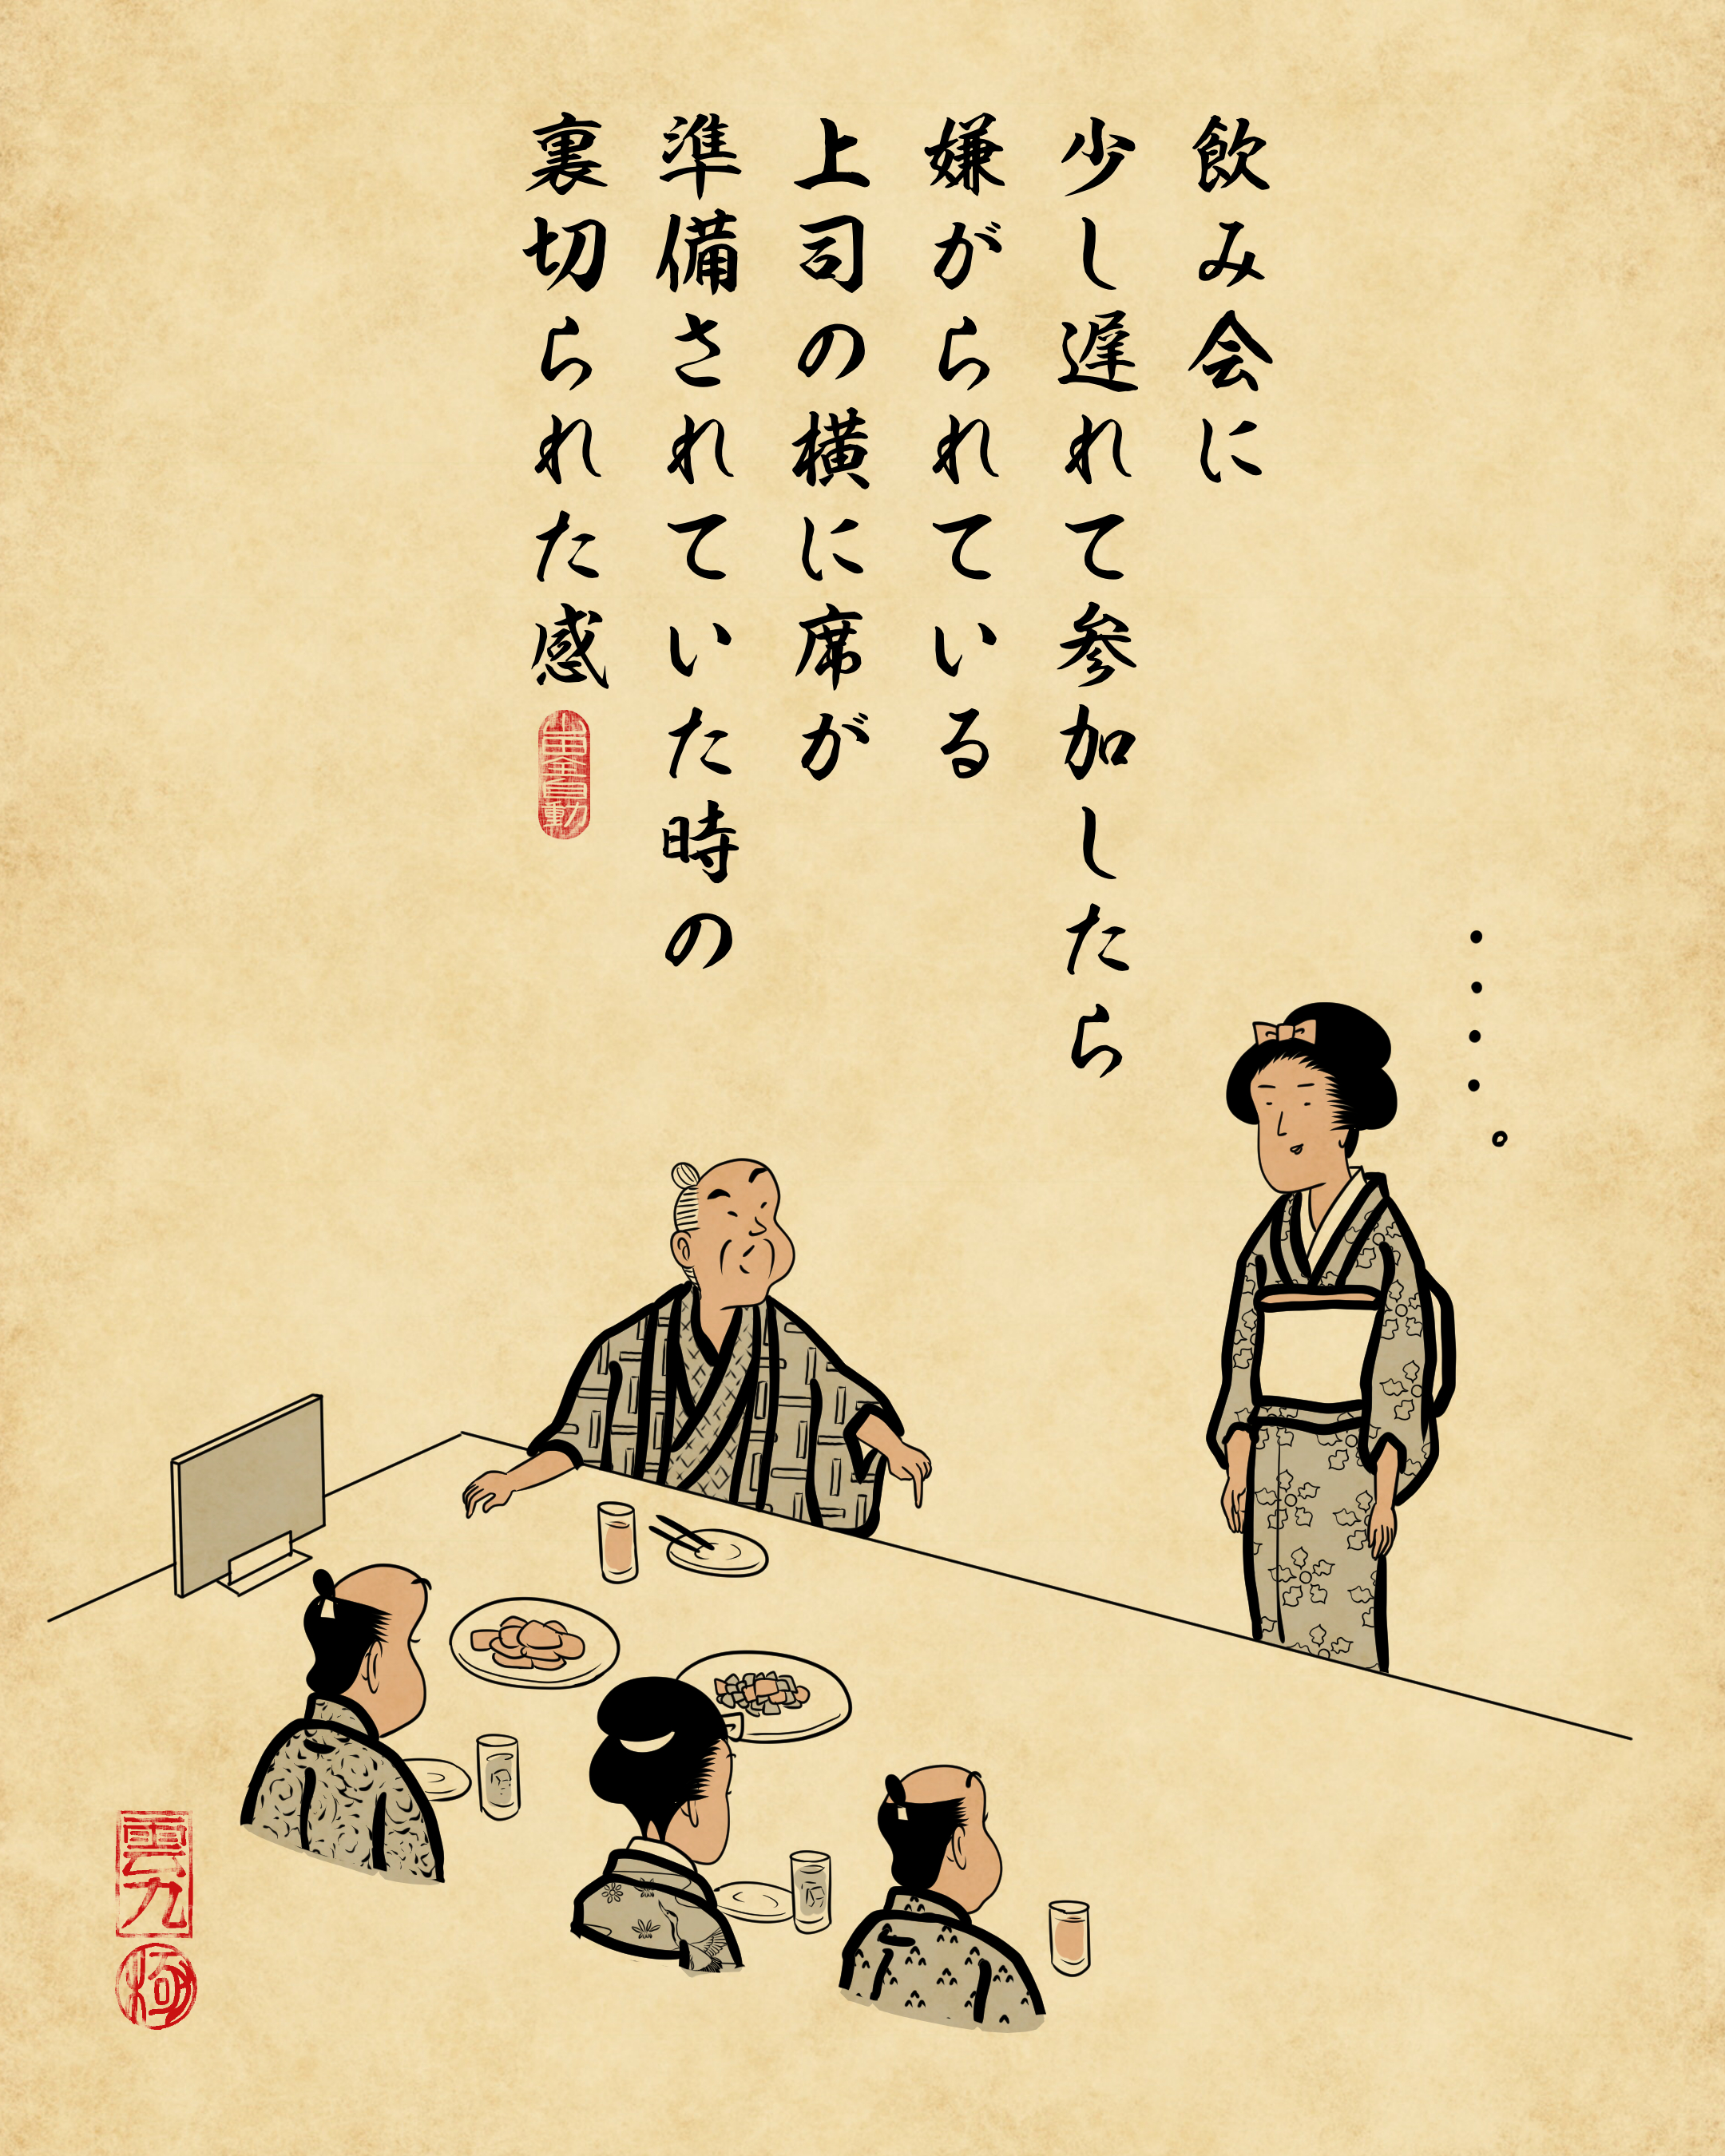 飲み会に
少し遅れて参加したら
嫌がられている
上司の横に席が
準備されていた時の
裏切られた感
山田全自動